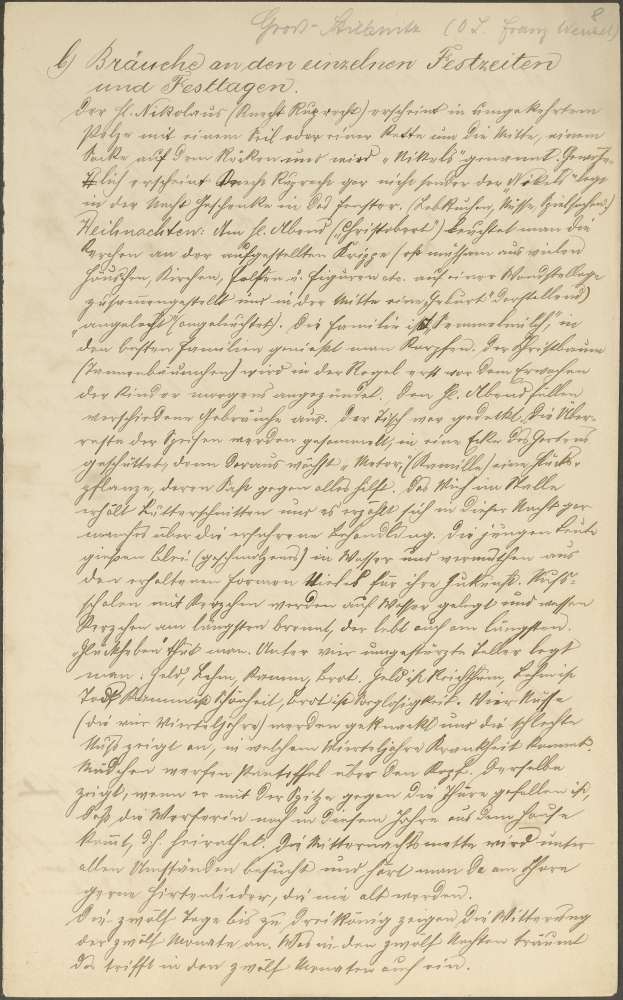 Groß- (O.L. Franz Wenzel) 8
b) Bräuche an den einzelnen Festzeiten
und Festtagen.
Der hl. Nikolaus (Knecht Ruprecht) erscheint in umgekehrtem
Pelze mit einem Seil oder einer Kette um die Mitte, einem
Sacke auf dem Rücken und wird „Nikolo" genannt. Gewöhn-
lich erscheint Knecht Ruprecht gar nicht sonder der „Nikolo" legt
in der Nacht Geschenke in das Fenster. (Lebkuchen, Nüsse, Spielsachen)
Weihnachten: Am hl. Abend („Christobent") leuchtet man die
Kerzchen an der aufgestellten Krippe (oft mühsam aus vielen
Häuschen, Kirchen, Felsen u. Figuren etc. auf einer Wandstellage
zusammengestellt und in der Mitte eine „Geburt" darstellend)
„angeleucht" (angeleuchtet). Die Familie ißt „Semmelmilch", in
den besten Familien genießt man Karpfen. Der Christbaum
(Tannenbäumchen) wird in der Regel erst vor dem Erwachen
der Kinder morgens angezündet. Den hl. Abend füllen
verschiedene Gebräuche aus. Der Tisch war gedeckt. Die Über-
reste der Speisen werden gesammelt, in eine Ecke des Gartens
geschüttet, denn daraus wächst „Meter", (Kamille) eine Glücks-
pflanze, deren Saft gegen alles hilft. Das Vieh im Stalle
erhält Butterschnitten und es erzählt sich in dieser Nacht gar
manches über die erfahrene Behandlung. Die jungen Leute
gießen Blei (geschmolzenes) in Wasser und vermuthen aus
den erhaltenen Formen Vieles für ihre Zukunft. Nuß-
schalen mit Kerzchen werden auf Wasser gelegt und wessen
Kerzchen am längsten brennt, der lebt auch am längsten.
„Glückheben" thut man. Unter vier umgestürzte Teller legt
man: Geld, Lehm, Kamm, Brot. Geld ist Reichthum, Lehm ist
Tod, Kamm ist Schönheit, Brot ist Sorglosigkeit. Vier Nüsse
(die vier Vierteljahre) werden geknackt und die schlechte
Nuß zeigt an, in welchem Vierteljahre Krankheit kommt.
Mädchen werfen Pantoffel über den Kopf. Derselbe
zeigt, wenn er mit der Spitze gegen die Thüre gefallen ist,
daß die Werferin noch in diesem Jahre aus dem Hause
kommt, d.h. heirathet. Die Mitternachtsmette wird unter
allen Umständen besucht und hört man da am Chore
gerne Hirtenlieder, die nie alt werden.
Die zwölf Tage bis zu Dreikönig zeigen die Witterung
der zwölf Monate an. Was in den zwölf Nächten träumt
das trifft in den zwölf Monaten auch ein.